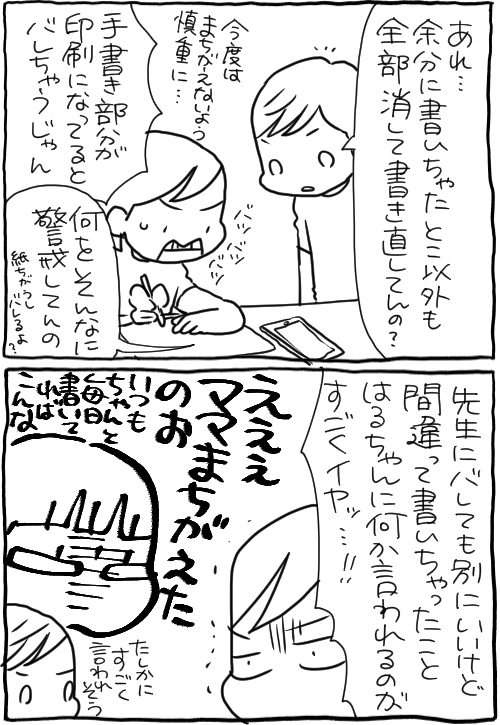 あれ…
余分に書いちゃたとこ以外も
全部消して書き直してんの?
今度は
まちがえないよう
慎重に…
手書き部分が
印刷になってると
バレちゃうじゃん
何をそんなに
警戒してんの
紙ちがうし
バレるよ?
先生にバレても別にいいけど
間違って書いちゃったこと
はるちゃんに何か言われるのが
すごくイヤッ…!!
えええ
ママまちがえた
のぉ
いつも
ちゃんと
毎日
書いて
れば
こんな
たしかに
すごく
言われそう